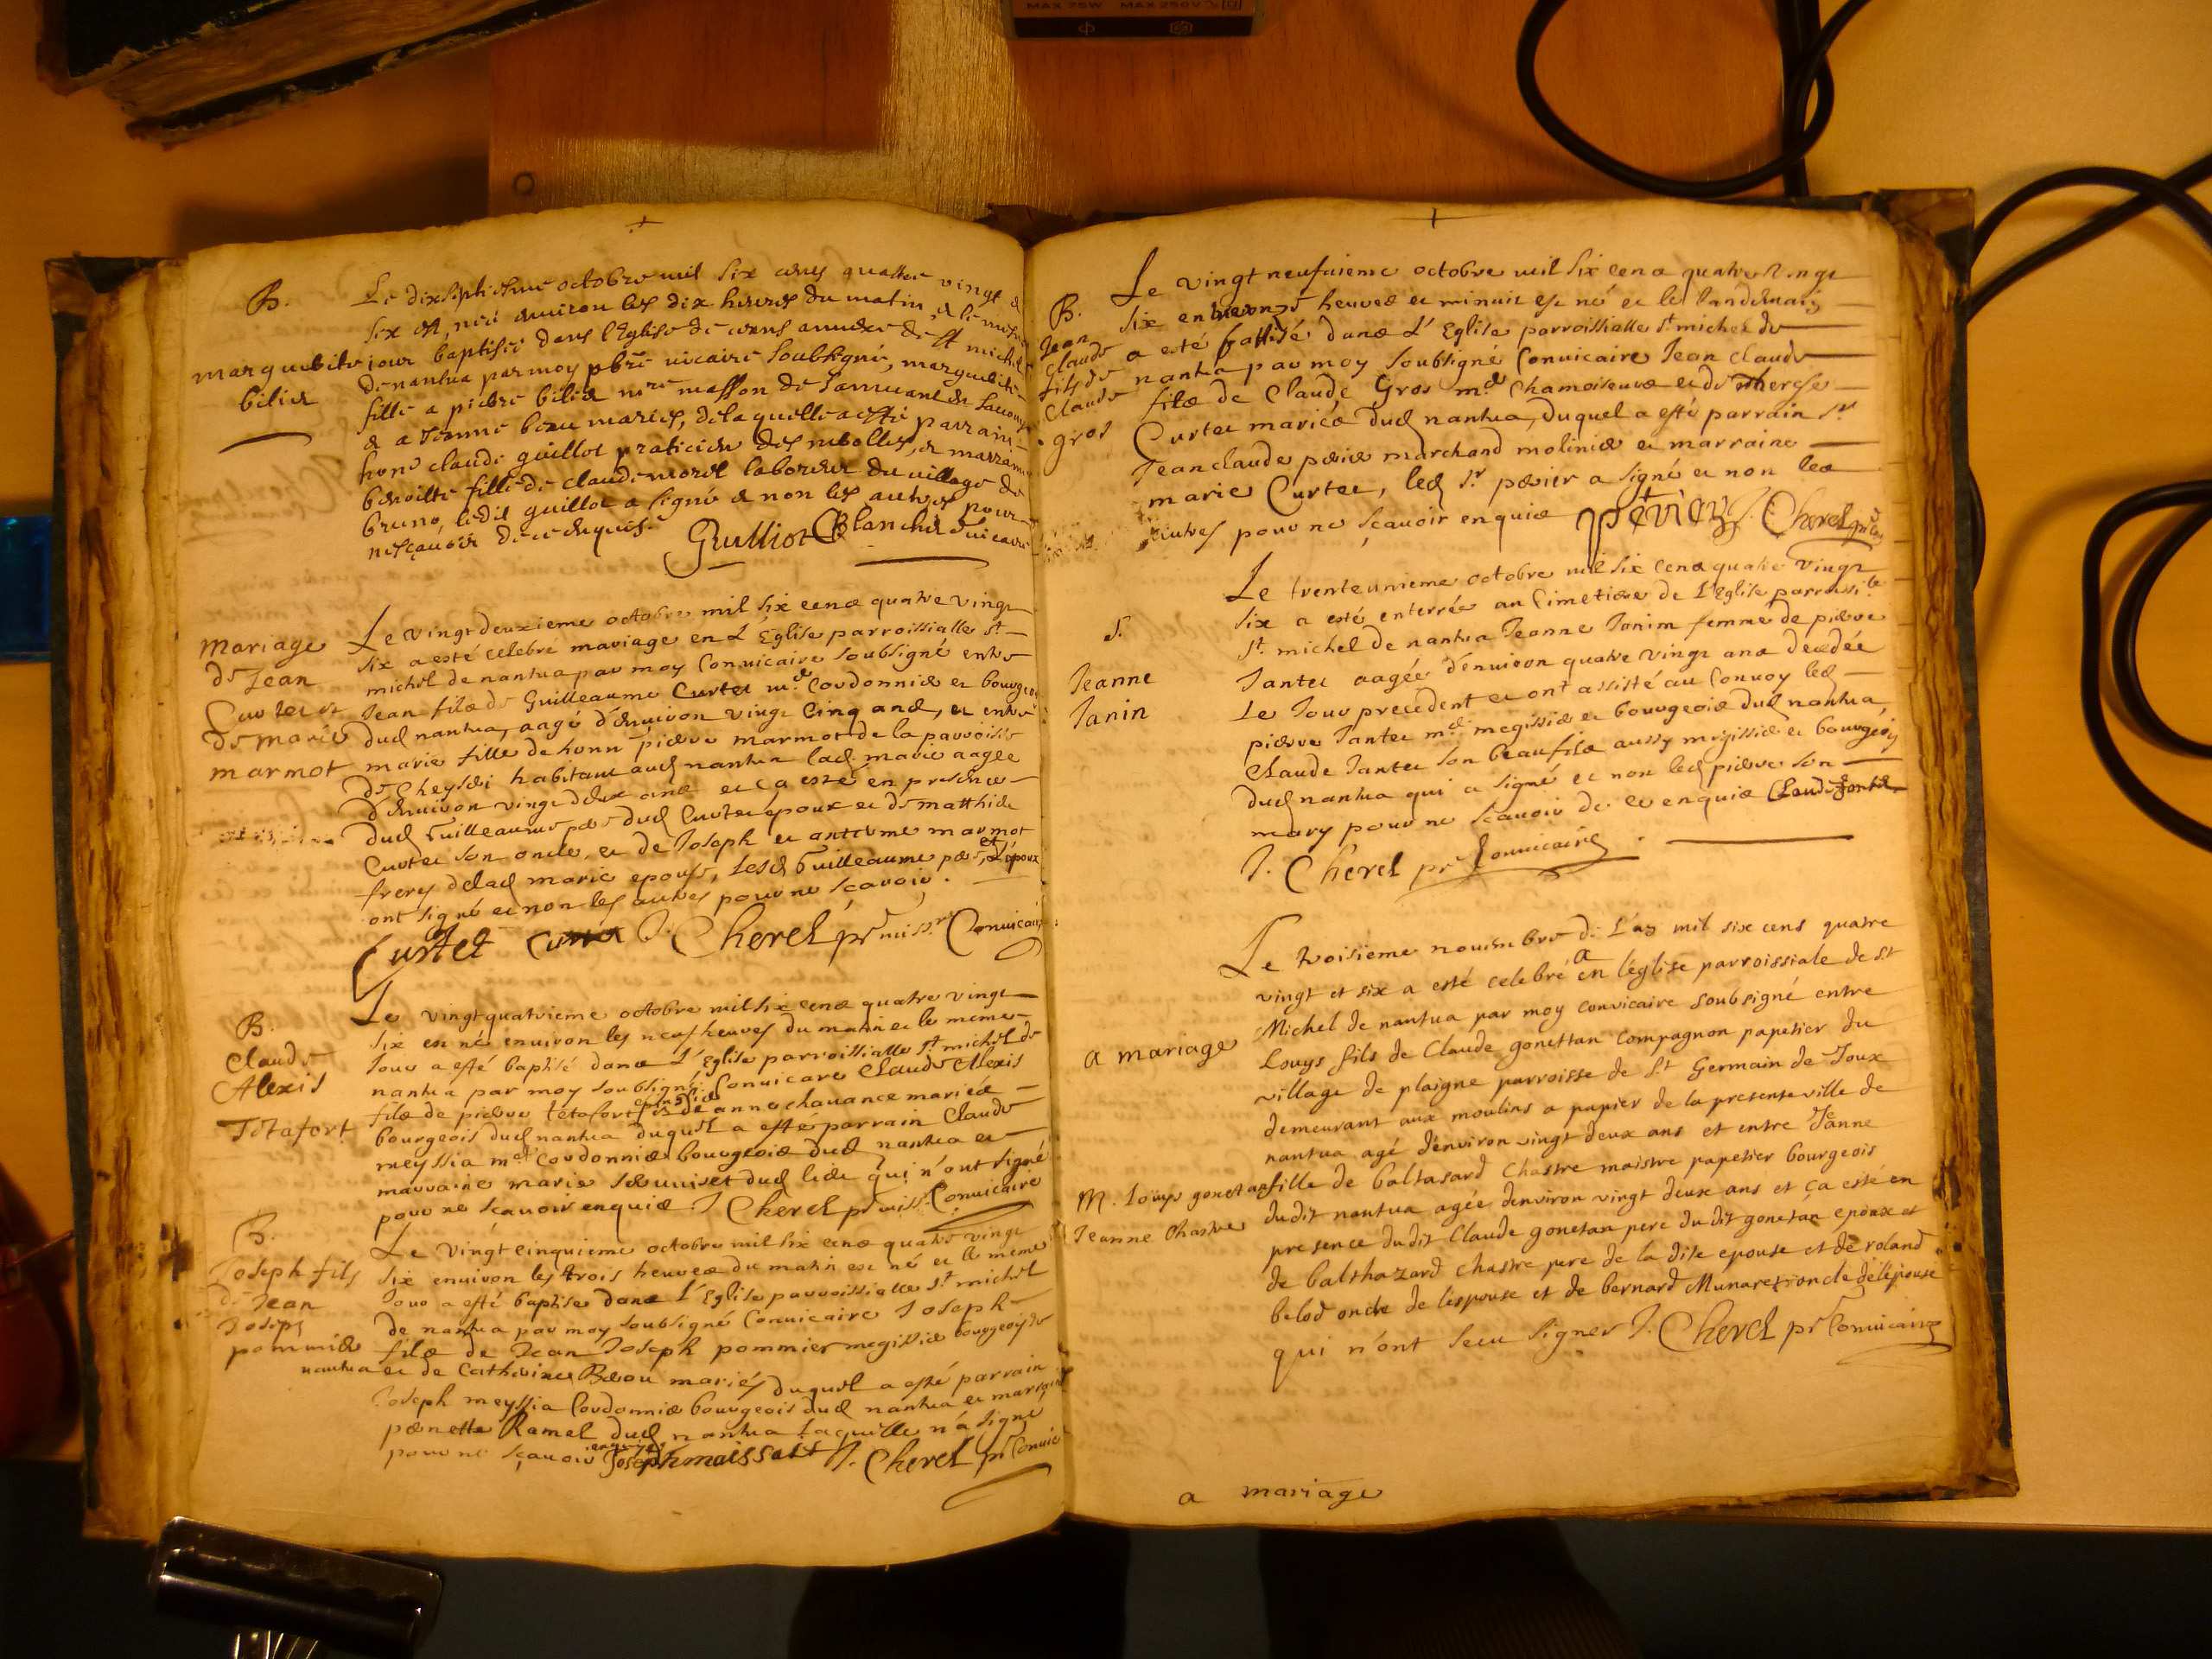 MAX 75W MAX 250V
B.
Le dixseptiesme octobre mil six cens quattre vingt &
six est née environ les dix heures du matin, & le mesme
marguerite
jour baptisée dans l'Eglise de annexe de st michel
bilier
de nantua par moy pbre vicaire soubsigné, marguerite
fille a pierre bilier masson de
& a beau mariés, de laquelle a esté parrain
hon. claude guillot praticien des & marraine
benoitte fille de claude morel laboureur du village de
bruno, ledit guillot a signé & non les autres pour
nesçavoir de ce enquis
Gulliot Blanchet vicaire
mariage
de Jean
Curtet et
de marie
marmot
Le vingt deuxieme octobre mil six cens quatre vingt
six a esté celebré mariage en L'Eglise parroissialle st
michel de nantua par moy Convicaire soubsigné entre
Jean fils de Guilleaume Curtet md Cordonnier et bourgeois
dud nantua, aagé d'environ vingt cinq ans, et entre
marie fille de honn pierre marmot de la parroisse
de Cheyseri habitant aud nantua lad. marie aagée
d'environ vingt deux ans et ça esté en presence
dud Guilleaume pere dud Curtet epoux et de matthieu
Curtet son oncle, et de Joseph et anterme marmot
freres de lad marie epouse, lesd Guilleaume pere, et L'epoux
ont signé et non les autres pour ne sçavoir.
Curtet J. Cherel pr miss. Convicaire
B.
Claude
Alexis
Tetafort
Le vingt quatrieme octobre mil six cens quatre vingt
six est né environ les neuf heures du matin et le meme
Jour a esté baptisé dans L'Eglise parroissialle st michel de
nantua par moy soubsigné Convicaire Claude Alexis
fils de pierre tetafort et de anne chavance mariés
bourgeois dud nantua duquel a esté parrain Claude
meyssia md Cordonnier bourgeois dud nantua et
marraine marie dud lieu qui n'ont signé
pour ne sçavoir enquis J Cherel pr miss. Convicaire
B.
Joseph fils
de Jean
Joseph
pommier
Le vingt cinquieme octobre mil six cens quatre vingt
six environ les trois heures du matin est né et le meme
Jour a esté baptisé dans L'Eglise parroissialle st michel
de nantua par moy soubsigné Convicaire Joseph
fils de Jean Joseph pommier megissier bourgeois de
nantua et de Catherine mariés duquel a esté parrain
Joseph meyssia Cordonnier bourgeois dud nantua et marraine
pernette Ramel dud nantua Laquelle n'a signé
pour ne sçavoir enquise Joseph maissiat J. Cherel pr Convic
B.
Jean
claude
fils de
Claude
gros
Le vingt neufvieme octobre mil six cens quatre vingt
six entre onze heures et minuit est né et le landemain
a esté battisé dans L'Eglise parroissialle st michel de
nantua par moy soubsigné Convicaire Jean claude
fils de Claude Gros md Chamoiseur et de therese
Curtet mariés dud nantua, duquel a esté parrain sr
Jean claude perier marchand molinier et marraine
marie Curtet, led sr perier a signé et non les
autres pour ne sçavoir enquis perier J. Cherel
S.
Jeanne
Janin
Le trente unieme octobre mil six cens quatre vingt
six a esté enterrée au Cimetiere de L'Eglise parroisle
st. michel de nantua Jeanne Janin femme de pierre
Jantet aagée d'environ quatre vingt ans decedée
Le Jour precedent et ont assisté au Convoy led
pierre Jantet md. megissier et bourgeois dud nantua,
Claude Jantet son beaufils aussy megissier et bourgeois
dud nantua qui a signé et non led pierre son
mary pour ne sçavoir de ce enquis Claude Jantet
J. Cherel pr Convicaire
a mariage
M. Louys gonetan
Jeanne Chastre
Le troisieme novembre de L'an mil six cens quatre
vingt et six a esté celebré a en l'église parroissiale de st
Michel de nantua par moy convicaire soubsigné entre
Louys fils de Claude gonettan compagnon papetier du
village de plaigne parroisse de st Germain de Joux
demeurant aux moulins a papier de la presente ville de
nantua agé d'environ vingt deux ans et entre Janne
fille de baltasard Chastre maistre papetier bourgeois
dudit nantua agée denviron vingt deux ans et ça esté en
presence dudit Claude gonetan pere dudit gonetan epoux et
de balthazard chastre pere de la dite epouse et de roland
belod oncle de lespouse et de bernard Munaret oncle de l'epouse
qui n'ont sceu signer J. Cherel pr Convicaire
a mariage